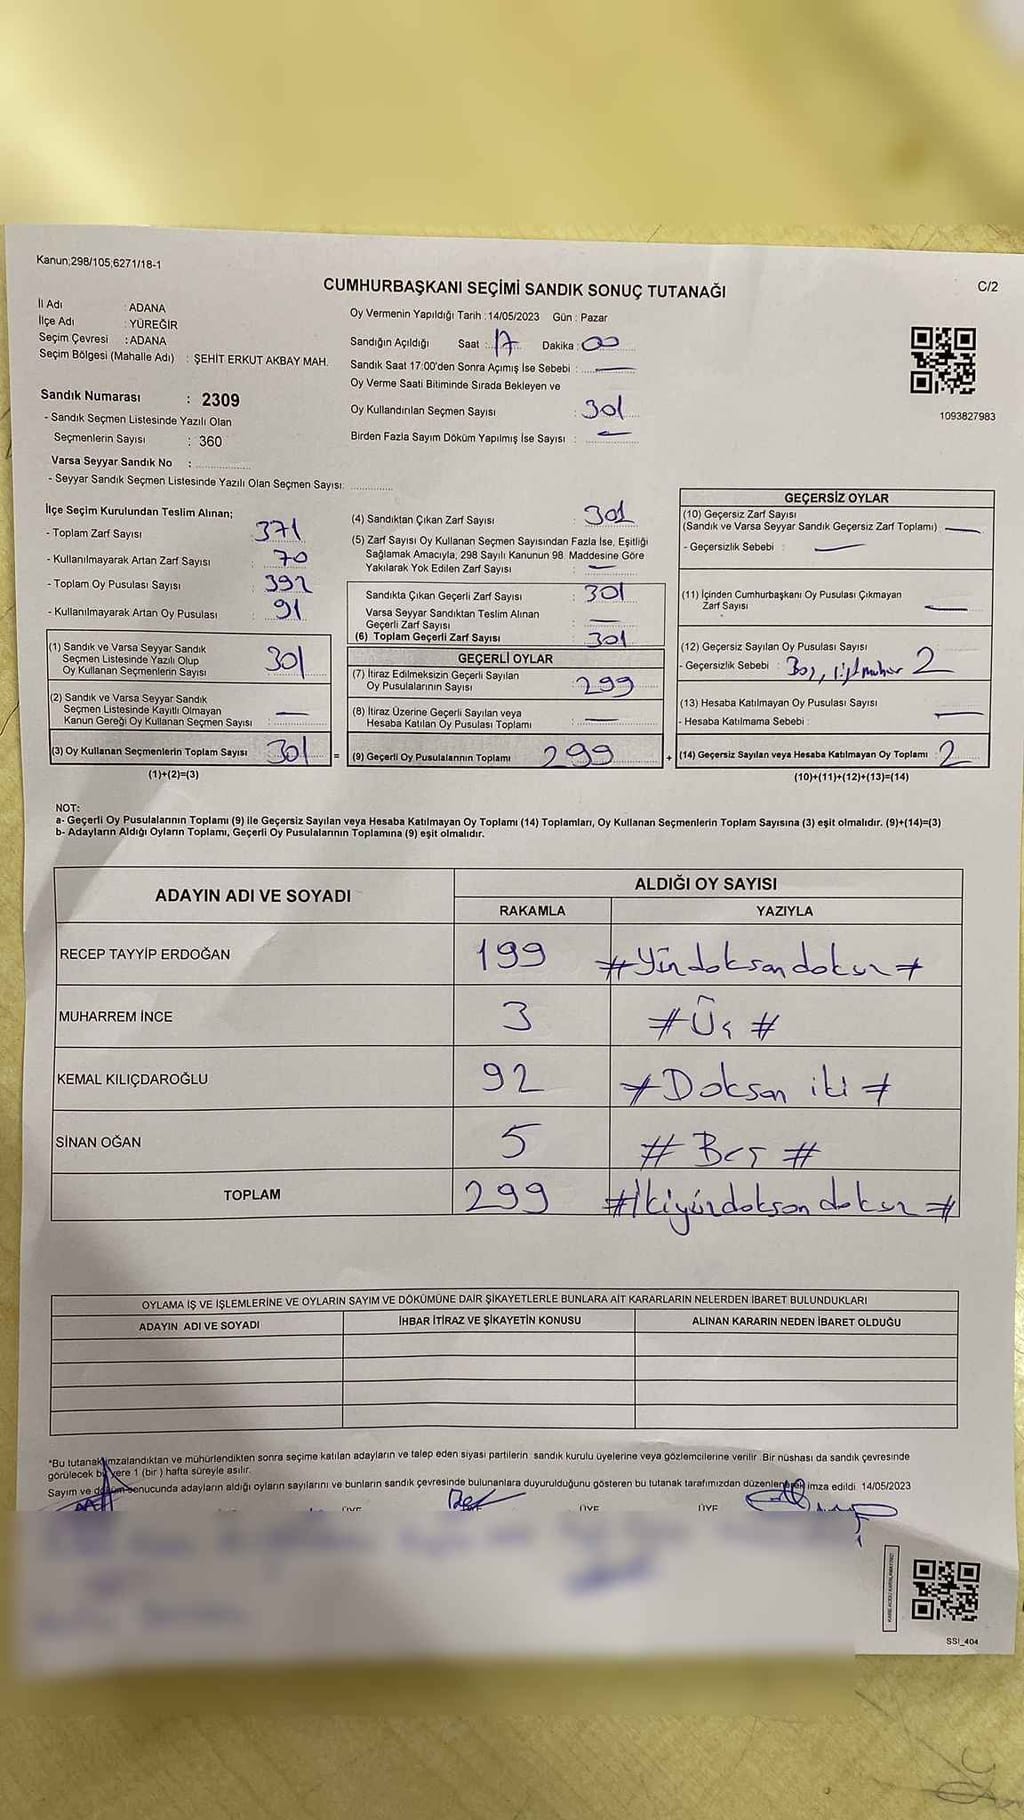 Kanun;298/105;6271/18-1
CUMHURBAŞKANI SEÇİMİ SANDIK SONUÇ TUTANAĞI
C/2
İl Adı : ADANA
İlçe Adı : YÜREĞİR
Seçim Çevresi : ADANA
Seçim Bölgesi (Mahalle Adı) : ŞEHİT ERKUT AKBAY MAH.
Oy Vermenin Yapıldığı Tarih : 14/05/2023 Gün : Pazar
Sandığın Açıldığı Saat : 17 Dakika : 00
Sandık Saat 17:00'den Sonra Açımış İse Sebebi : —
Oy Verme Saati Bitiminde Sırada Bekleyen ve
Oy Kullandırılan Seçmen Sayısı : 301
Birden Fazla Sayım Döküm Yapılmış İse Sayısı : —
1093827983
Sandık Numarası : 2309
- Sandık Seçmen Listesinde Yazılı Olan
Seçmenlerin Sayısı : 360
Varsa Seyyar Sandık No :
- Seyyar Sandık Seçmen Listesinde Yazılı Olan Seçmen Sayısı:
İlçe Seçim Kurulundan Teslim Alınan;
- Toplam Zarf Sayısı : 371
- Kullanılmayarak Artan Zarf Sayısı : 70
- Toplam Oy Pusulası Sayısı : 392
- Kullanılmayarak Artan Oy Pusulası : 91
(1) Sandık ve Varsa Seyyar Sandık
Seçmen Listesinde Yazılı Olup
Oy Kullanan Seçmenlerin Sayısı 301
(2) Sandık ve Varsa Seyyar Sandık
Seçmen Listesinde Kayıtlı Olmayan
Kanun Gereği Oy Kullanan Seçmen Sayısı : —
(3) Oy Kullanan Seçmenlerin Toplam Sayısı 301
(1)+(2)=(3)
(4) Sandıktan Çıkan Zarf Sayısı : 301
(5) Zarf Sayısı Oy Kullanan Seçmen Sayısından Fazla İse, Eşitliği
Sağlamak Amacıyla; 298 Sayılı Kanunun 98. Maddesine Göre
Yakılarak Yok Edilen Zarf Sayısı : —
Sandıkta Çıkan Geçerli Zarf Sayısı : 301
Varsa Seyyar Sandıktan Teslim Alınan
Geçerli Zarf Sayısı : —
(6) Toplam Geçerli Zarf Sayısı : 301
GEÇERLİ OYLAR
(7) İtiraz Edilmeksizin Geçerli Sayılan
Oy Pusulalarının Sayısı : 299
(8) İtiraz Üzerine Geçerli Sayılan veya
Hesaba Katılan Oy Pusulası Toplamı : —
= (9) Geçerli Oy Pusulalarının Toplamı 299
GEÇERSİZ OYLAR
(10) Geçersiz Zarf Sayısı
(Sandık ve Varsa Seyyar Sandık Geçersiz Zarf Toplamı) : —
- Geçersizlik Sebebi : —
(11) İçinden Cumhurbaşkanı Oy Pusulası Çıkmayan
Zarf Sayısı —
(12) Geçersiz Sayılan Oy Pusulası Sayısı
- Geçersizlik Sebebi : Boş, 2
(13) Hesaba Katılmayan Oy Pusulası Sayısı
- Hesaba Katılmama Sebebi : —
+ (14) Geçersiz Sayılan veya Hesaba Katılmayan Oy Toplamı : 2
(10)+(11)+(12)+(13)=(14)
NOT:
a- Geçerli Oy Pusulalarının Toplamı (9) ile Geçersiz Sayılan veya Hesaba Katılmayan Oy Toplamı (14) Toplamları, Oy Kullanan Seçmenlerin Toplam Sayısına (3) eşit olmalıdır. (9)+(14)=(3)
b- Adayların Aldığı Oyların Toplamı, Geçerli Oy Pusulalarının Toplamına (9) eşit olmalıdır.
ADAYIN ADI VE SOYADI ALDIĞI OY SAYISI
RAKAMLA YAZIYLA
RECEP TAYYİP ERDOĞAN 199 #Yüzdoksandokuz#
MUHARREM İNCE 3 #Üç#
KEMAL KILIÇDAROĞLU 92 #Doksan iki#
SİNAN OĞAN 5 #Beş#
TOPLAM 299 #İkiyüzdoksandokuz#
OYLAMA İŞ VE İŞLEMLERİNE VE OYLARIN SAYIM VE DÖKÜMÜNE DAİR ŞİKAYETLERLE BUNLARA AİT KARARLARIN NELERDEN İBARET BULUNDUKLARI
ADAYIN ADI VE SOYADI İHBAR İTİRAZ VE ŞİKAYETİN KONUSU ALINAN KARARIN NEDEN İBARET OLDUĞU
*Bu tutanak imzalandıktan ve mühürlendikten sonra seçime katılan adayların ve talep eden siyasi partilerin sandık kurulu üyelerine veya gözlemcilerine verilir. Bir nüshası da sandık çevresinde
görülecek bir yere 1 (bir) hafta süreyle asılır.
Sayım ve döküm sonucunda adayların aldığı oyların sayılarını ve bunların sandık çevresinde bulunanlara duyurulduğunu gösteren bu tutanak tarafımızdan düzenlenerek imza edildi. 14/05/2023
ÜYE ÜYE ÜYE
SSİ_404